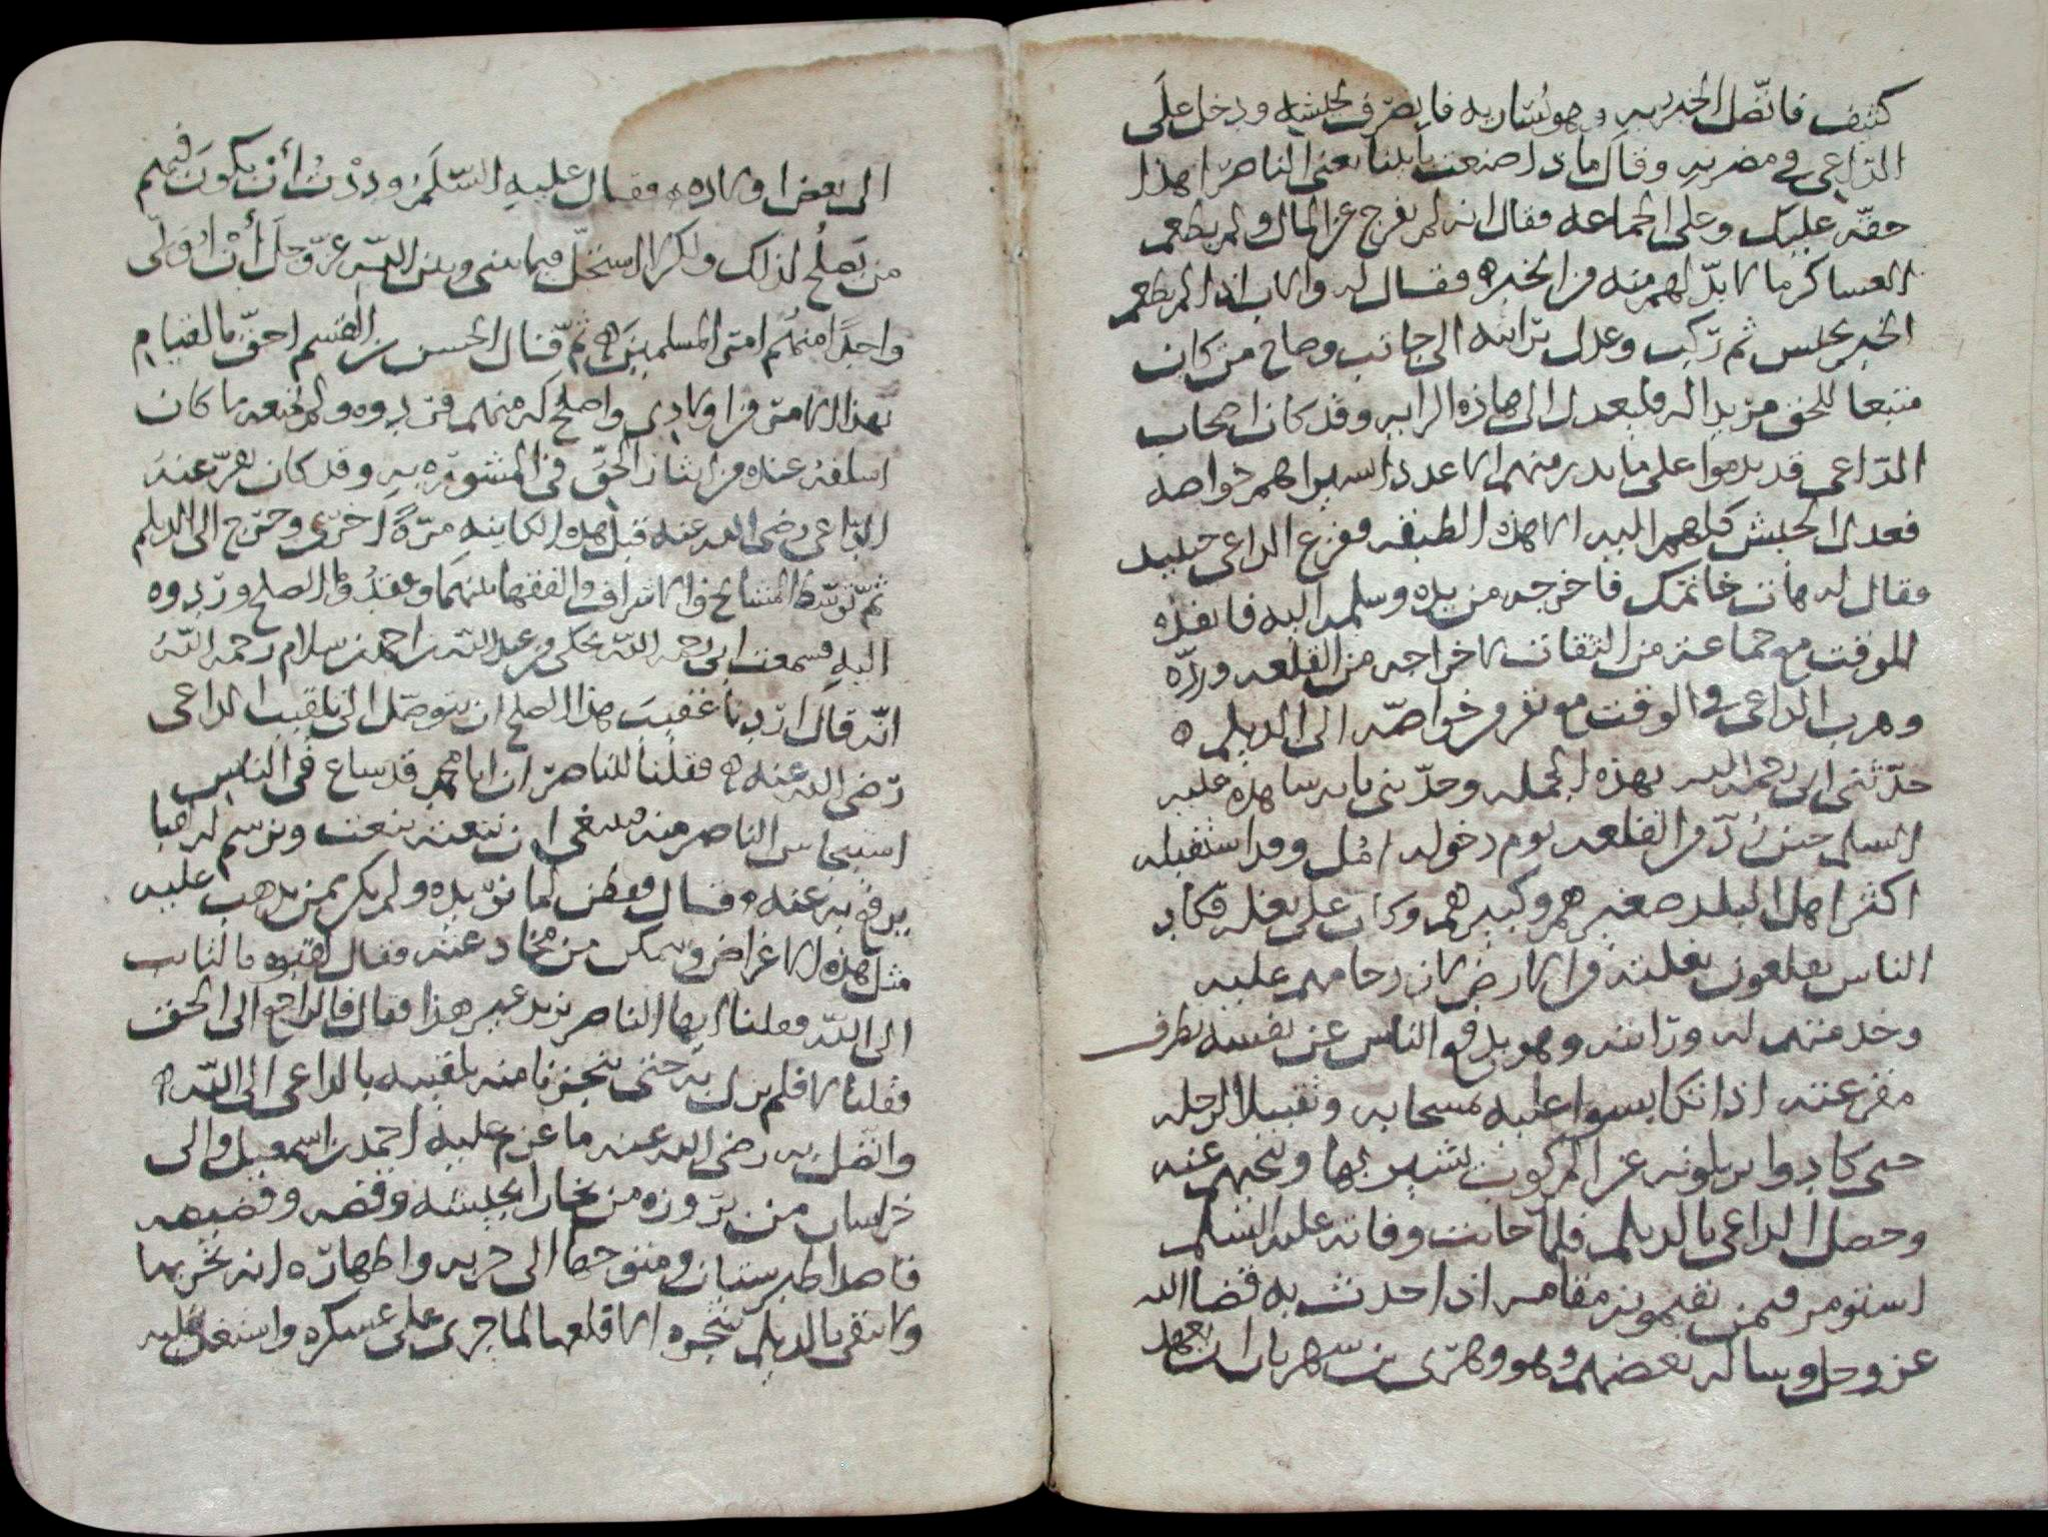 كثيف فاتصل الخبر به وهو بسارية فانصرف بجيشه ودخل على
الداعي في مضربه وقال ماذا صنعت بابينا يعني الناصر اهذا
حقه عليك وعلى الجماعة فقال انه لم يفرج عن المال ولم يعط
العساكر ما لا بد لهم منه من الخبز ه فقال له والاب اذا لم يعط
الخبز يحبس ثم ركب وعدل برايته الى جانب وصاح من كان
متبعا للحق مريدا له فليعدل الى هاذه الراية وقد كان اصحاب
الداعي قد ندموا على ما بدر منهم الا عددا يسيرا هم خواصه
فعدل الجيش كلهم اليه الا هذه الطبقة ففزع الداعي حينيد
فقال له هات خاتمك فاخرجه من يده وسلمه اليه فانفذه
الموقت مع جماعة من الثقات لاخراجه من القلعة ورده
وهرب الداعي في الوقت مع نفر من خواصه الى الديلم ه
حدثني ابي رحمه الله بهذه الجملة وحدثني بانه شاهده عليه
السلم حين رد من القلعة يوم دخوله امل وقد استقبله
اكثر اهل البلد صغيرهم وكبيرهم وكان على بغلة فكاد
الناس يقلعون بغلته من الارض لازدحامهم عليه
وخدمتهم له ورايته وهو يدفع الناس عن نفسه بطرف
مقرعته اذا تكابسوا عليه تمسحا به وتقبيلا لرجله
حتى كادوا يزيلونه عن المركوب يشير بها وينحيهم عنه
وحصل الداعي بالديلم فلما حانت وفاته عليه السلم
استومر فيمن يقيمونه مقامه اذا حدث به قضا الله
عز وجل وساله بعضهم وهو وهري بن شهريار ان يعهد
الى بعض اولاده ه فقال عليه السلم وددت أن يكون فيهم
من يصلح لذلك ولكن لا استحل فيما بيني وبين الله عز وجل أن اولي
واحدا منهم امر المسلمين ه ثم قال الحسن بن القسم احق بالقيام
بهذا الامر من اولادي واصلح له منهم فردوه ولم يمنعه ما كان
اسلفه عنده من ايثار الحق في المشورة به وقد كان نفر عنه
الداعي رضى الله عنه قبل هذه الكاينة مرة اخرى وخرج الى الديلم
ثم توسط المشايخ والاشراف والفقها بينهما وعقدوا الصلح وردوه
اليه فسمعت ابي رحمه الله يحكي عن عبد الله بن احمد بن سلام رحمه الله
انه قال اردنا عقيب هذا الصلح ان نتوصل الى تلقيب الداعي
رضى الله عنه ه فقلنا للناصر ان ابا محمد قد شاع في الناس
استيحاش الناصر منه فينبغي ان تنعته بنعت وترسم له لقبا
يرفع به عنه ه فقال وفطن لما نريده ولم يكن ممن يذهب عليه
مثل هذه الاغراض ويتمكن من مخادعته فقال لقبوه بالتايب
الى الله فقلنا ايها الناصر نريد غير هذا فقال فالراجع الى الحق
فقلنا لا فلم نزل به حتى تنجزنا منه تلقيبه بالداعي الى الله ه
واتصل به رضى الله عنه ما عزم عليه احمد بن اسمعيل والى
خراسان من بروزه من بخارا بجيشه وقضه وقضيضه
قاصدا طبرستان ومتوجها الى حربه واظهاره انه يخربها
ولا يبقى بالديلم شجرة الا قلعها لما جرى على عسكره واستعد